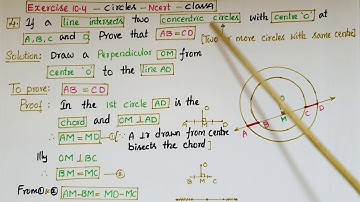 Exercise 10.4 - Circles - Ncert - Class 9
4. If a line intersects two concentric circles with centre 'O' at
A, B, C and D. Prove that AB = CD
[Two or more circles with same centre]
Solution: Draw a Perpendicular OM from
centre 'O' to the line AD
To prove: AB = CD
Proof: In the 1st circle AD is the
chord and OM ⊥ AD
∴ AM = MD - ① ∵ A ⊥r drawn from centre
bisects the chord]
Illy OM ⊥ BC
∴ BM = MC - ②
From ① & ② AM - BM = MD - MC
O
A M D
O
B M C
O
A B M C D